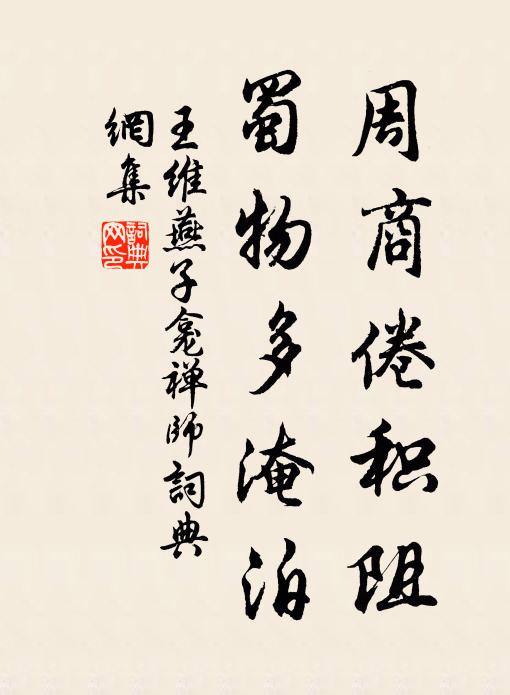 周商倦积阻
蜀物多淹泊
王维燕子龛禅师詞典
網集
詞典
网印